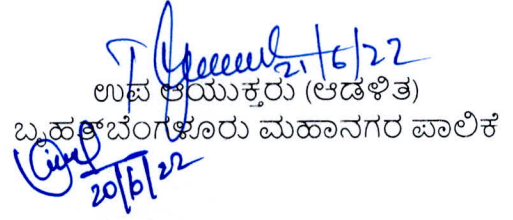 21/6/22
ಉಪ ಆಯುಕ್ತರು (ಆಡಳಿತ)
ಬೃಹತ್‌ಬೆಂಗಳೂರು ಮಹಾನಗರ ಪಾಲಿಕೆ
20/6/22